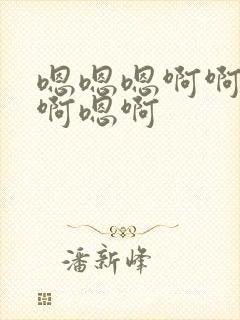 嗯嗯嗯啊啊
啊嗯啊
潘新峰